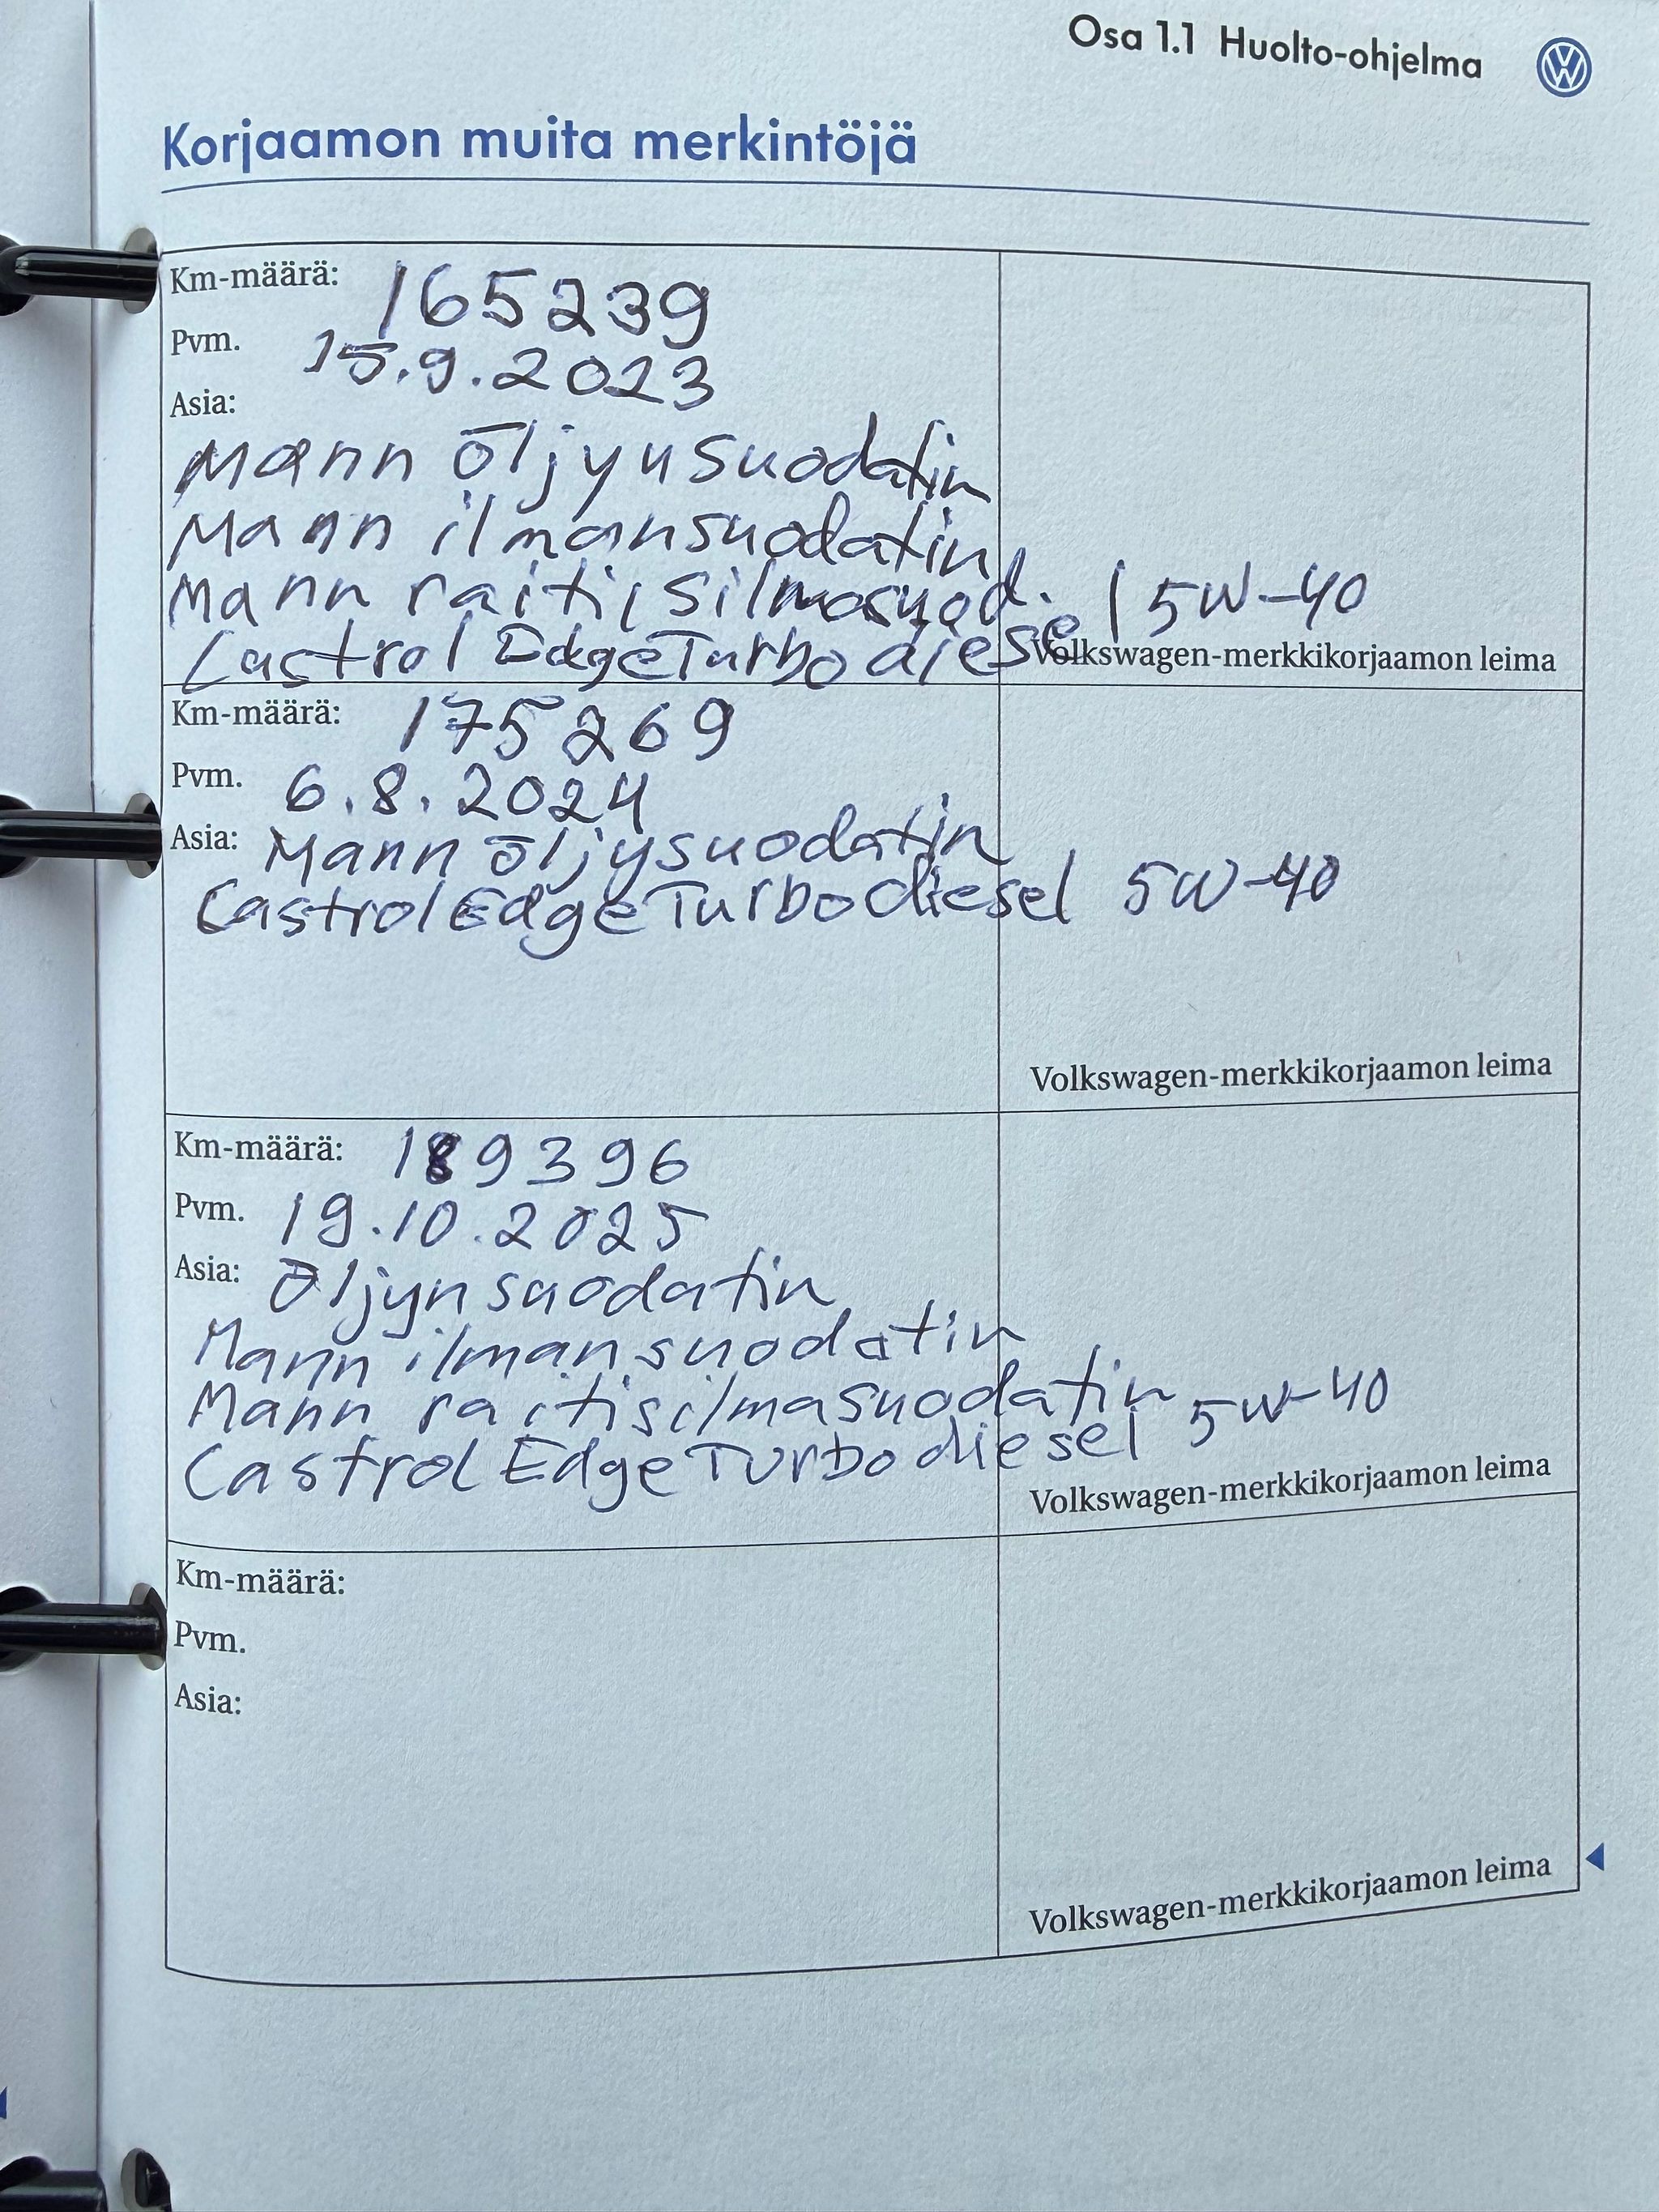 Osa 1.1 Huolto-ohjelma
Korjaamon muita merkintöjä
Km-määrä: 165239
Pvm. 15.9.2023
Asia:
Mann öljynsuodatin
Mann ilmansuodatin
Mann raitisilmasuod.
Castrol Edge Turbo diesel 5W-40
Volkswagen-merkkikorjaamon leima
Km-määrä: 175269
Pvm. 6.8.2024
Asia: Mann öljysuodatin
Castrol Edge Turbo diesel 5W-40
Volkswagen-merkkikorjaamon leima
Km-määrä: 189396
Pvm. 19.10.2025
Asia: Öljynsuodatin
Mann ilmansuodatin
Mann raitisilmasuodatin
Castrol Edge Turbo diesel 5W-40
Volkswagen-merkkikorjaamon leima
Km-määrä:
Pvm.
Asia:
Volkswagen-merkkikorjaamon leima